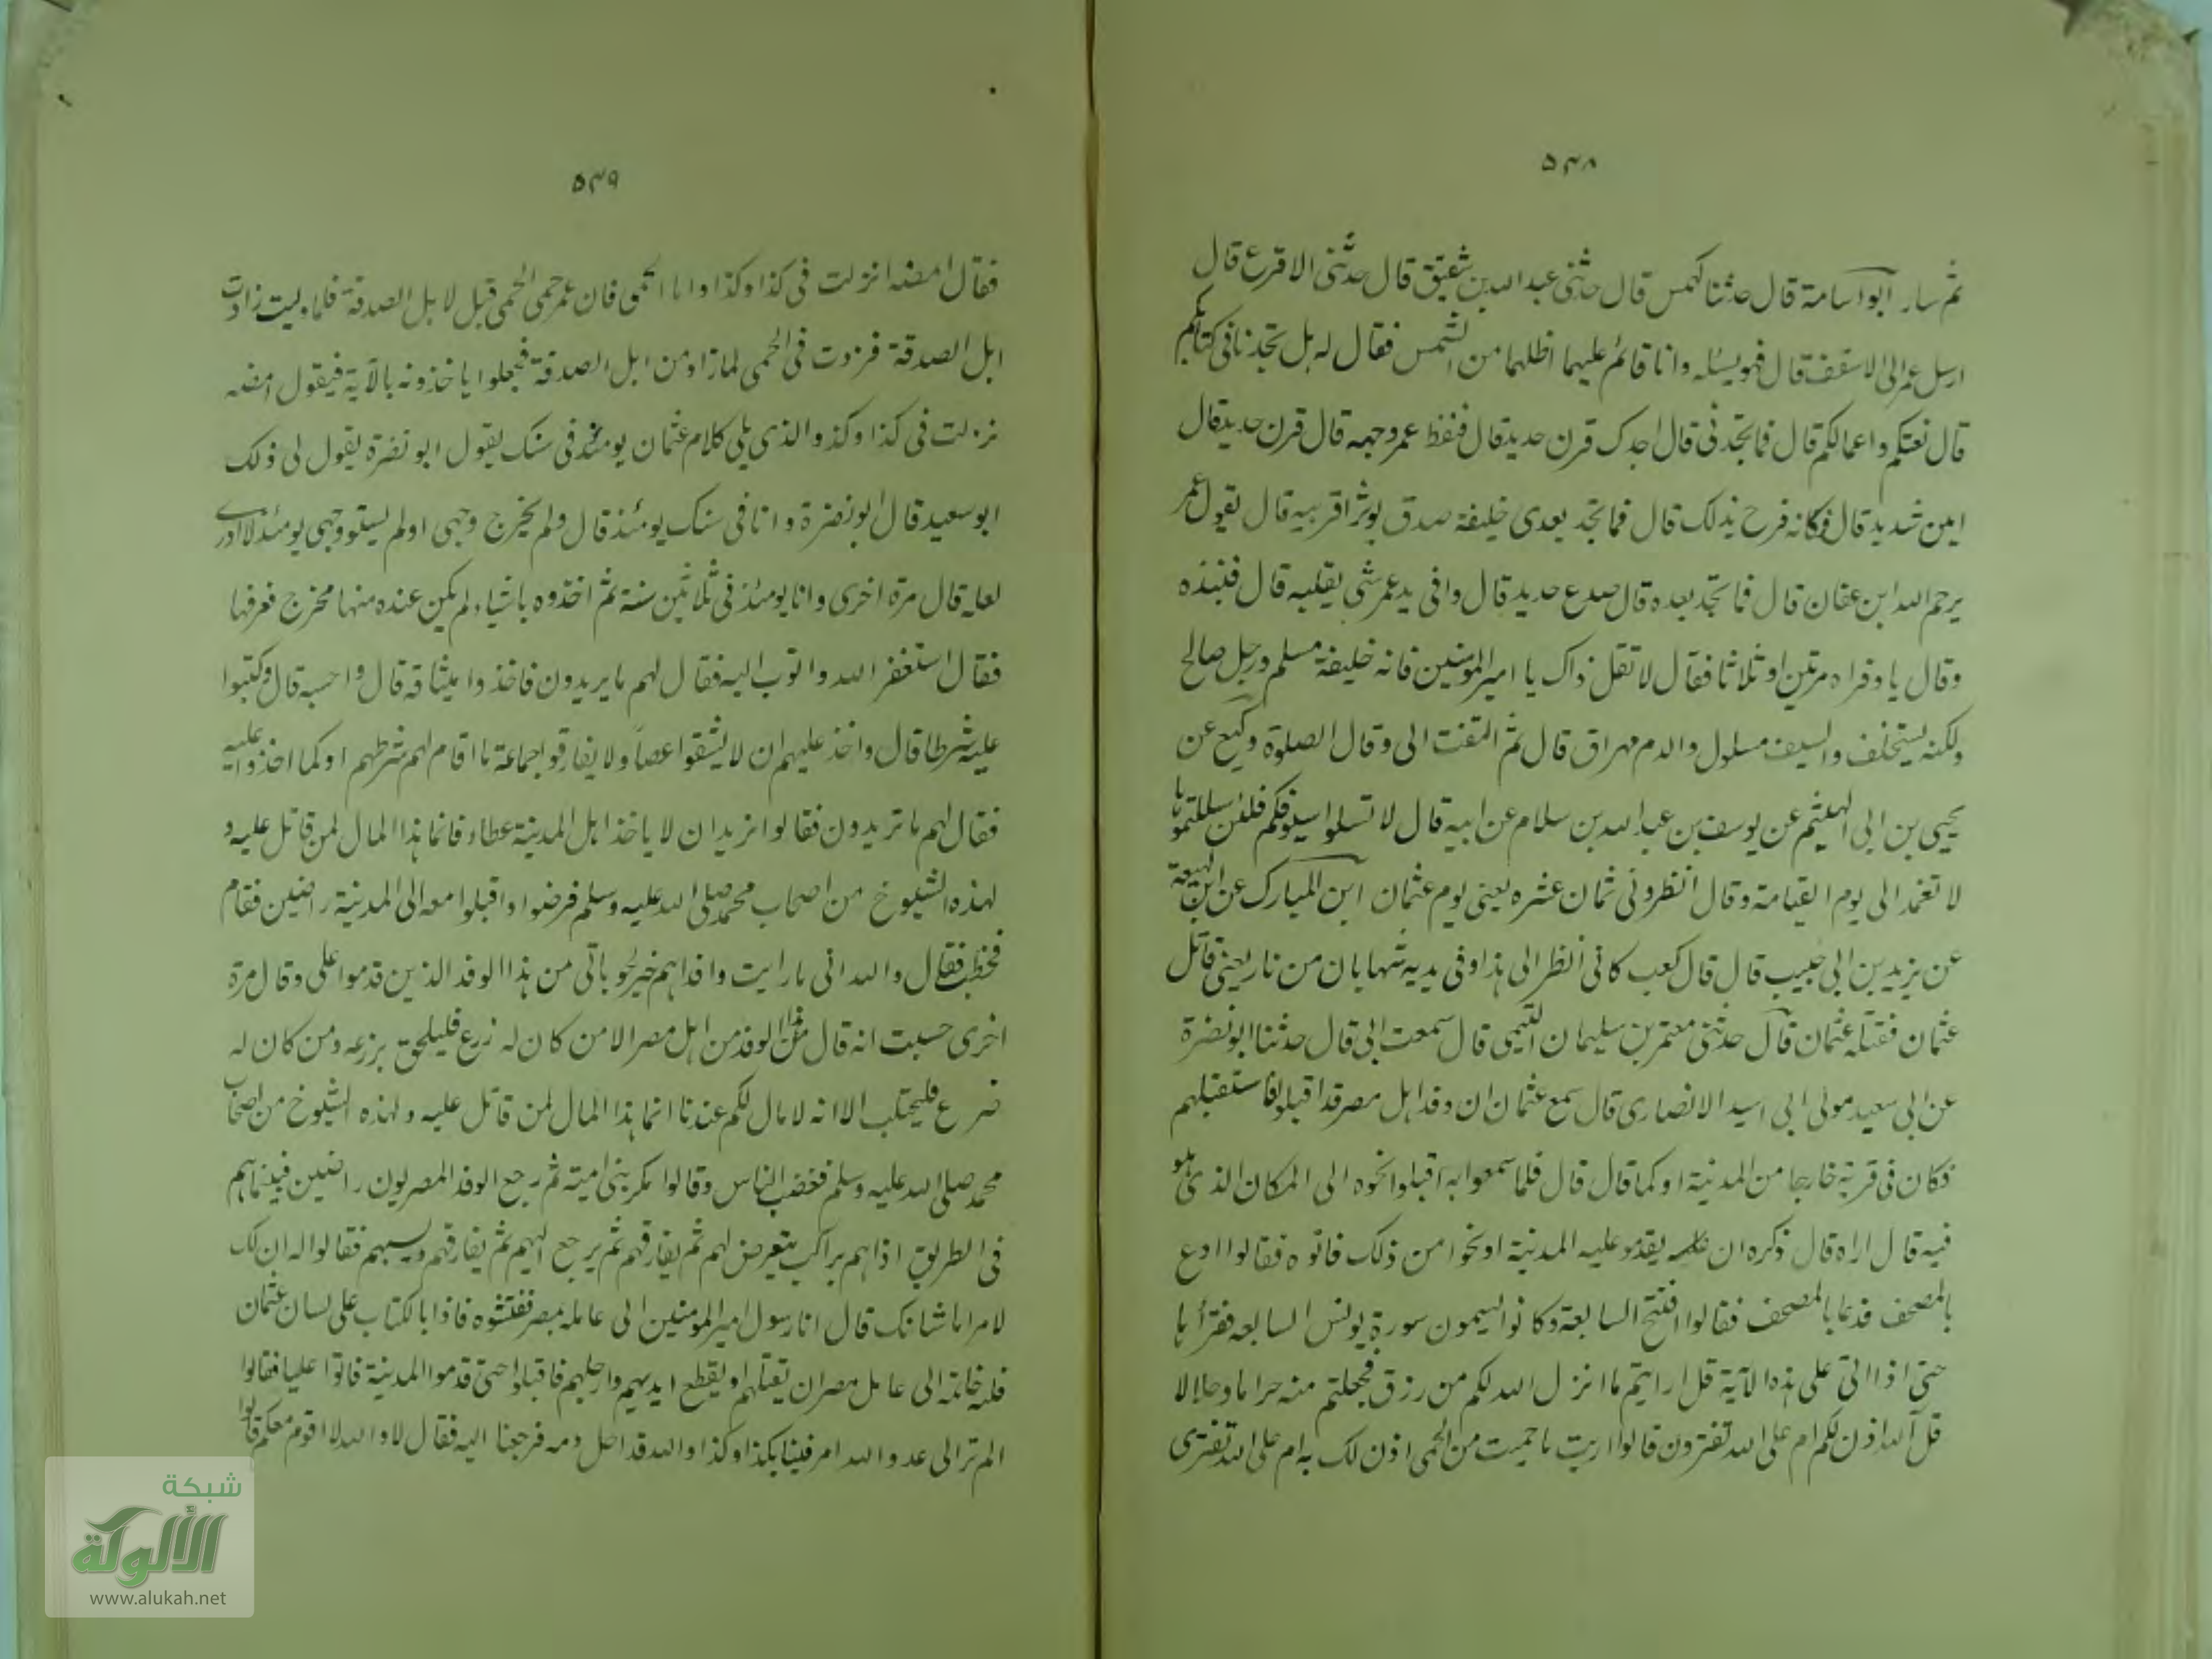 ۵۳۸
ثم سار ابو اسامة قال حدثنا كهمس قال حدثنى عبد الله بن شقيق قال حدثنى الاقرع قال
ارسل عمر الى الاسقف قال فهو يسئله وانا قائم عليهما اظلهما من الشمس فقال له هل تجدنا فى كتابكم
قال نعتكم واعمالكم قال فما تجدنى قال اجدك قرن حديد قال فنفط عمر وجهه قال قرن حديد قال
امين شديد قال فكانه فرح بذلك قال فما تجد بعدى خليفة صدق يوثر اقربيه قال يقول عمر
يرحم الله ابن عفان قال فما تجد بعده قال صدع حديد قال وفى يد عمر شى يقلبه قال فنبذه
وقال يا دفراه مرتين او ثلاثا فقال لا تقل ذاك يا امير المومنين فانه خليفة مسلم ورجل صالح
ولكنه يستخلف والسيف مسلول والدم مهراق قال ثم التفت الى وقال الصلوة وكيع عن
يحيى بن ابى الهيثم عن يوسف بن عبد الله بن سلام عن ابيه قال لا تسلوا سيوفكم فلئن سللتموها
لا تغمد الى يوم القيامة وقال انظرونى ثمان عشره يعنى يوم عثمان ابن المبارك عن ابن لهيعة
عن يزيد بن ابى حبيب قال قال كعب كانى انظر الى هذا وفى يديه شهابان من نار يعنى قاتل
عثمان فقتله عثمان قال حدثنى معتمر بن سليمان التيمى قال سمعت ابى قال حدثنا ابو نضرة
عن ابى سعيد مولى ابى اسيد الانصارى قال سمع عثمان ان وفد اهل مصر قد اقبلوا فاستقبلهم
فكان فى قرية خارجا من المدينة او كما قال قال فلما سمعوا به اقبلوا نحوه الى المكان الذى هو
فيه قال اراه قال ذكره ان يقدمو عليه المدينة او نحوا من ذلك فاتوه فقالوا ادع
بالمصحف فدعا بالمصحف فقالوا افتح السابعة وكانوا يسمون سورة يونس السابعه فقرأها
حتى اذا اتى على هذه الآية قل ارايتم ما انزل الله لكم من رزق فجعلتم منه حراما وحلالا
قل آلله اذن لكم ام على الله تفترون قالوا اريت ما حميت من الحمى اذن لك به ام على الله تفترى
۵۳۹
فقال امضه انزلت فى كذا وكذا واما الحمى فان عمر حمى الحمى قبل لابل الصدقة فلما وليت زادت
ابل الصدقة فزدت فى الحمى لما زاد من ابل الصدقة فجعلوا ياخذونه بالآية فيقول امضه
نزلت فى كذا وكذ والذى يلى كلام عثمان يومئذ فى سنك يقول ابو نضرة يقول لى ذلك
ابو سعيد قال ابو نضرة وانا فى سنك يومئذ قال ولم يخرج وجهى او لم يستو وجهى يومئذ لا ادرى
لعله قال مرة اخرى وانا يومئذ فى ثلاثين سنة ثم اخذوه باشياء لم يكن عنده منها مخرج فعرفها
فقال استغفر الله واتوب اليه فقال لهم ما يريدون فاخذوا ميثاقه قال واحسبه قال وكتبوا
عليه شرطا قال واخذ عليهم ان لا يشقوا عصاً ولا يفارقوا جماعة ما اقام لهم شرطهم او كما اخذوا عليه
فقال لهم ما تريدون فقالوا نريد ان لا ياخذ اهل المدينة عطاء فانما هذا المال لمن قاتل عليه و
لهذه الشيوخ من اصحاب محمد صلى الله عليه وسلم فرضوا واقبلوا معه الى المدينة راضين فقام
فخطب فقال والله انى ما رايت وافدا هم خير لحوباتى من هذا الوفد الذين قدموا على وقال مرة
اخرى حسبت انه قال من هذا الوفد من اهل مصر الا من كان له زرع فليلحق بزرعه ومن كان له
ضرع فليحتلب الا انه لا مال لكم عندنا انما هذا المال لمن قاتل عليه ولهذه الشيوخ من اصحاب
محمد صلى الله عليه وسلم فغضب الناس وقالوا مكر بنى امية ثم رجع الوفد المصريون راضين فبينما هم
فى الطريق اذا هم براكب يتعرض لهم ثم يفارقهم ثم يرجع اليهم ثم يفارقهم ويسبهم فقالوا له ان لك
لامرا ما شانك قال انا رسول امير المومنين الى عامله بمصر ففتشوه فاذا بالكتاب على لسان عثمان
عليه خاتمه الى عامل مصر ان يقتلهم او يقطع ايديهم وارجلهم فاقبلوا حتى قدموا المدينة فاتوا عليا فقالوا
الم تر الى عدو الله امر فينا بكذا وكذا والله قد احل دمه فرجعنا اليه فقال لا والله لا اقوم معكم قالوا
شبكة
الألوكة
www.alukah.net